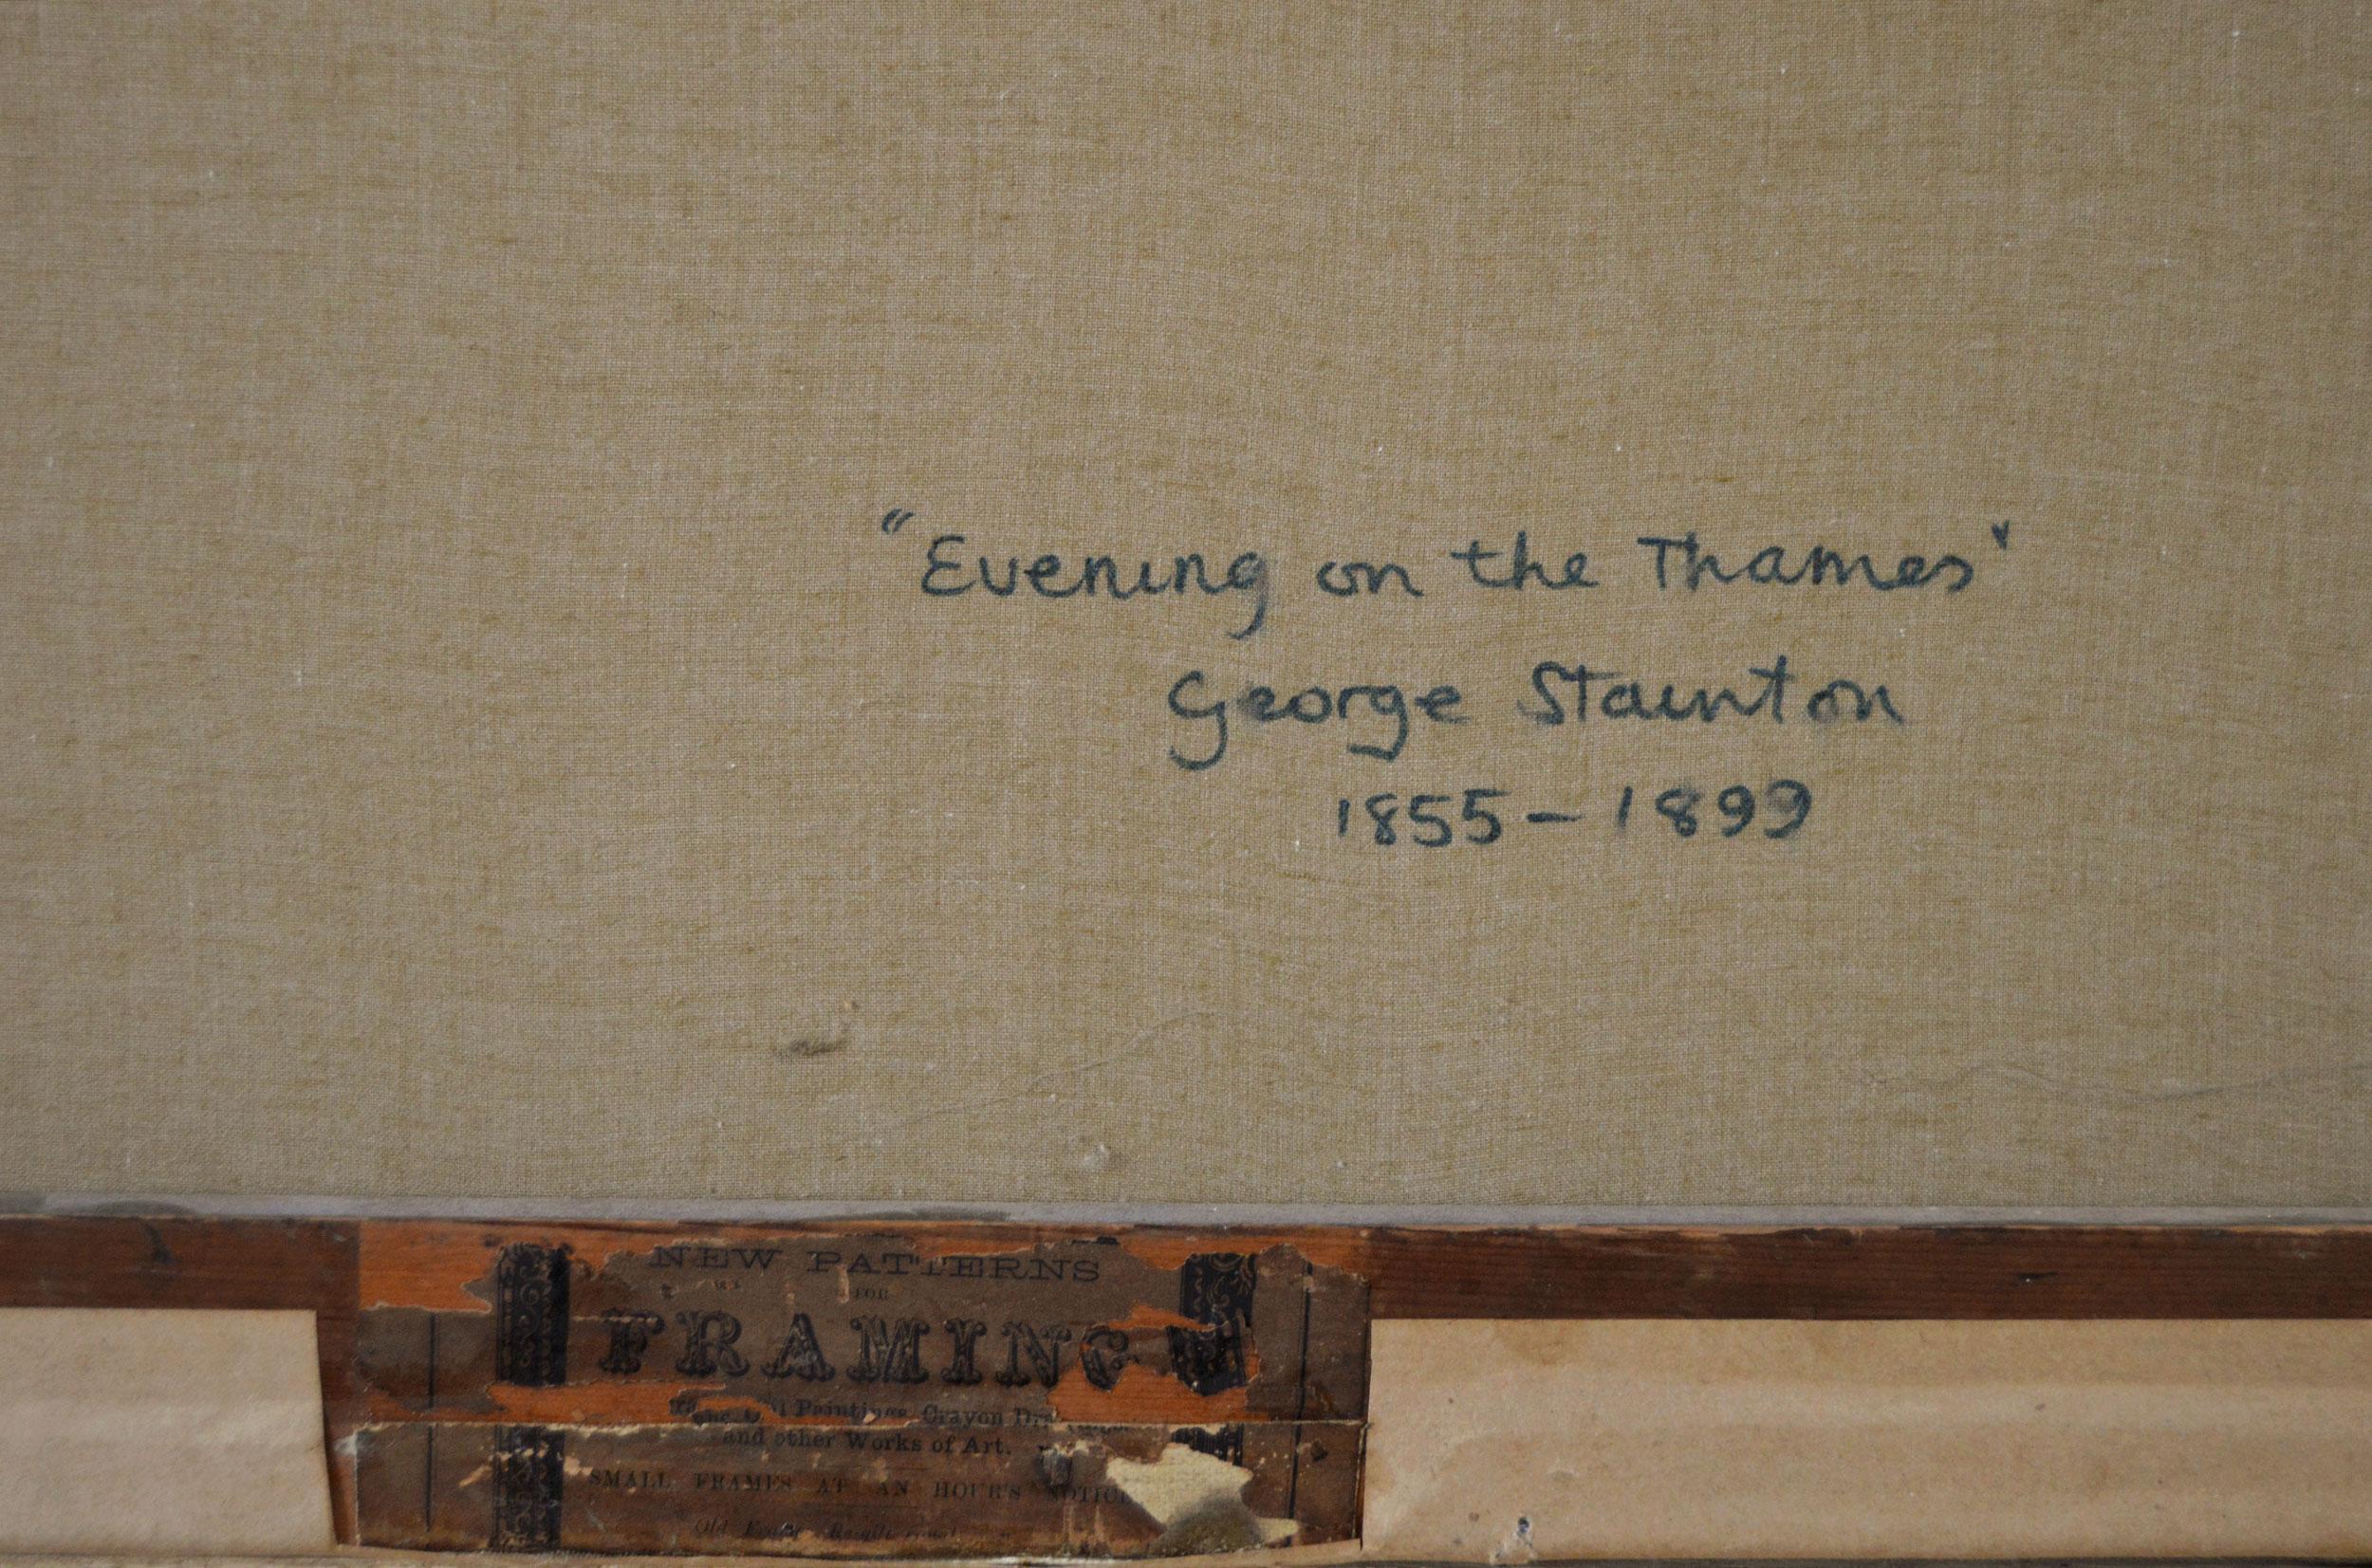 "Evening on the Thames"
George Staunton
1855 – 1899
NEW PATTERNS
FOR
FRAMING
Oil Paintings, Crayon
and other Works of Art.
SMALL FRAMES AT AN HOUR'S NOTICE
Old